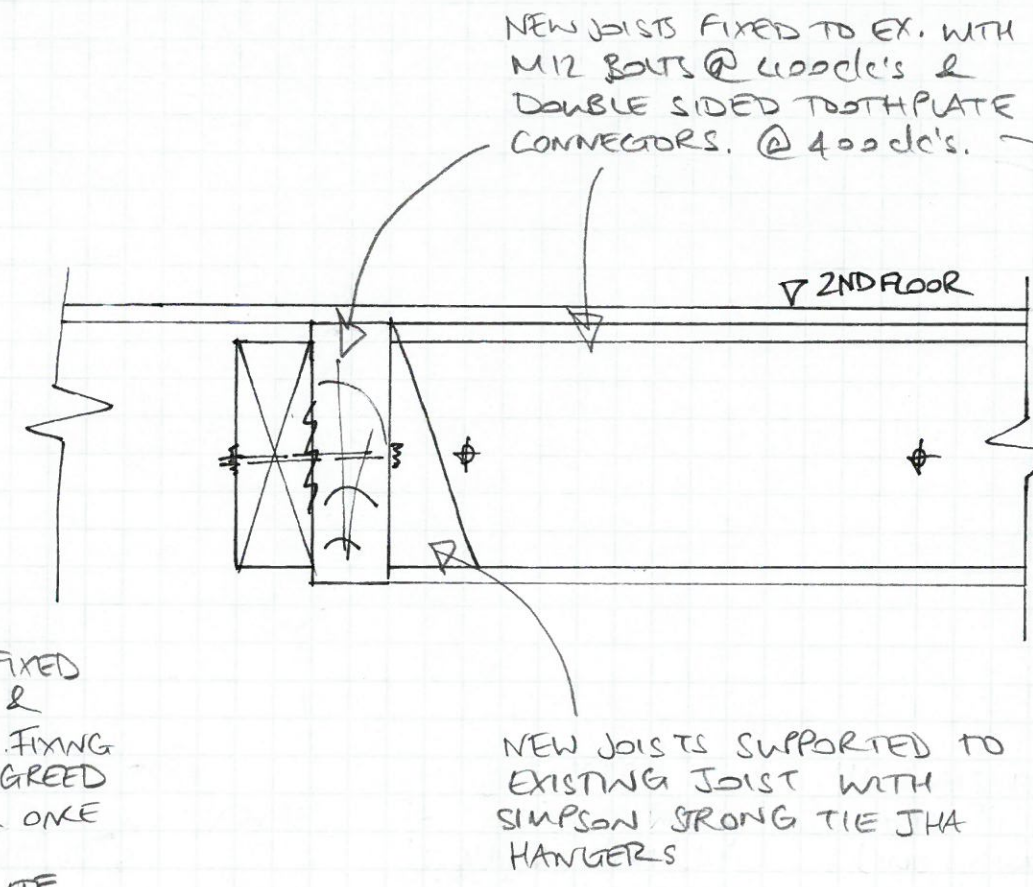 NEW JOISTS FIXED TO EX. WITH
M12 BOLTS @ 400c/c's &
DOUBLE SIDED TOOTHPLATE
CONNECTORS. @ 400c/c's.
2ND FLOOR
FIXED
&
. FIXING
GREED
ONCE
NEW JOISTS SUPPORTED TO
EXISTING JOIST WITH
SIMPSON STRONG TIE JHA
HANGERS